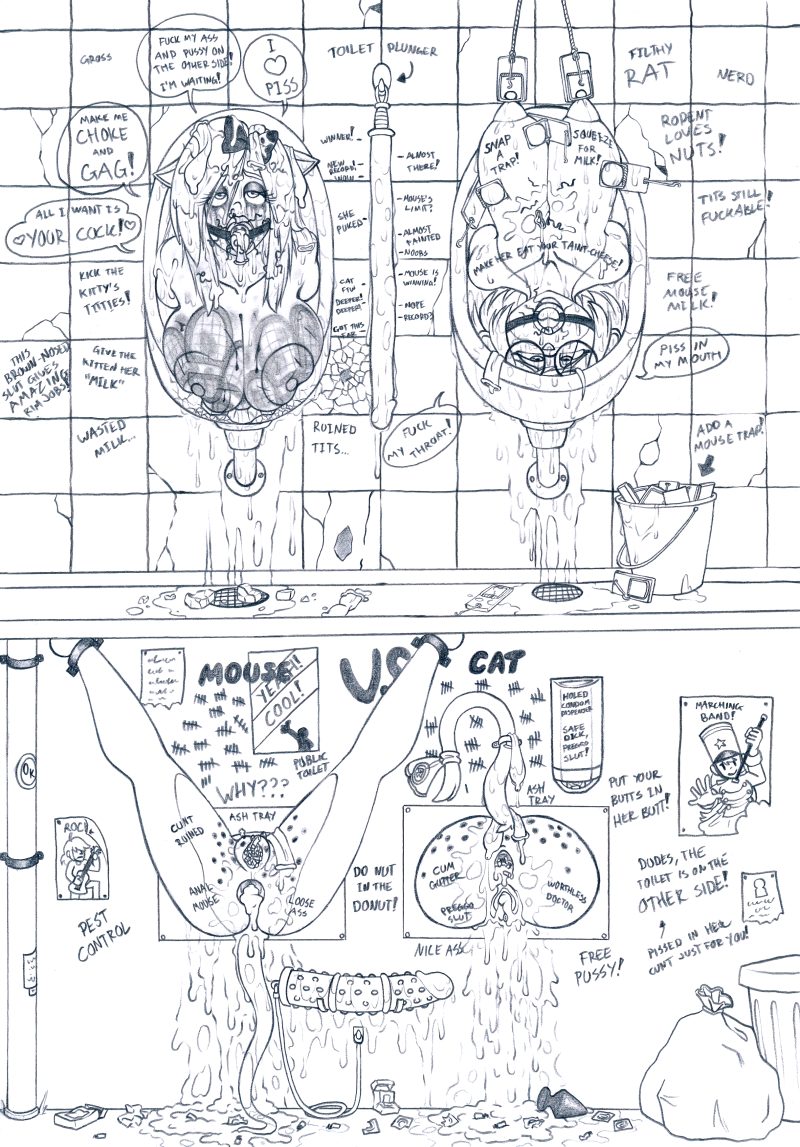 GROSS
FUCK MY ASS
AND PUSSY ON
THE OTHER SIDE!
I'M WAITING!
I
♡
PISS
TOILET PLUNGER
FILTHY
RAT
NERD
MAKE ME
CHOKE
AND
GAG!
WINNER!
NEW
RECORD!
SHE
PUKED
CAT
FTW
DEEPER!
DEEPER!
GOT THIS
FAR
ALMOST
THERE!
MOUSE'S
LIMIT?
ALMOST
FAINTED
NOOBS
MOUSE IS
WINNING!
NOPE
RECORD?
SNAP
A
TRAP!
SQUEEZE
FOR
MILK!
RODENT
LOVES
NUTS!
ALL I WANT IS
♡YOUR COCK!♡
TITS STILL
FUCKABLE!
MAKE HER EAT YOUR TAINT-CHEESE!
KICK THE
KITTY'S
TITTIES!
FREE
MOUSE
MILK!
THIS
BROWN-NOSED
SLUT GIVES
AMAZING
RIM JOBS!
GIVE THE
KITTEN HER
"MILK"
PISS IN
MY MOUTH
WASTED
MILK...
RUINED
TITS...
FUCK
MY THROAT!
ADD A
MOUSE TRAP!
MOUSE
V.S
CAT
YEAH!!
COOL!
PUBLIC
TOILET
WHY???
HOLED
CONDOM
DISPENSER
SAFE
DICK,
PREGGO
SLUT!
MARCHING
BAND!
OK
ROCK
PEST
CONTROL
ASH TRAY
CUNT
RUINED
ANAL
MOUSE
LOOSE
ASS
DO NUT
IN THE
DONUT!
ASH
TRAY
CUM
GUTTER
PREGGO
SLUT
WORTHLESS
DOCTOR
NILE ASS
FREE
PUSSY!
PUT YOUR
BUTTS IN
HER BUTT!
DUDES, THE
TOILET IS ON THE
OTHER SIDE!
PISSED IN HER
CUNT JUST FOR YOU!